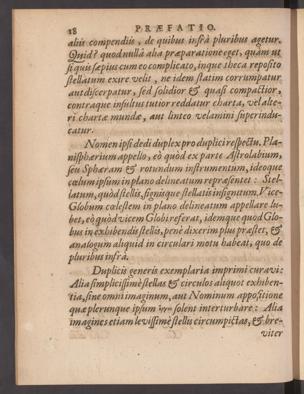 18 PRÆFATIO.
aliis compendiis, de quibus infrà pluribus agetur.
Quid? quod nullâ alia præparatione eget, quàm ut
si quis sæpius cum eo complicato, inque theca reposito
stellatum exire velit, ne idem statim corrumpatur
aut discerpatur, sed solidior & quasi compactior,
contraque insultus tutior reddatur charta, vel alte-
ri chartæ mundæ, aut linteo velamini superindu-
catur.
Nomen ipsi dedi duplex pro duplici respectu. Pla-
nisphærium appello, eò quòd ex parte Astrolabium,
seu Sphæram & rotundum instrumentum, ideoque
cœlum ipsum in plano delineatum repræsentet: Stel-
latum, quòd stellis, signisque stellatis insignitum. Vice-
Globum cælestem in plano delineatum appellare lu-
bet, eò quòd vicem Globi referat, idemque quod Glo-
bus in exhibendis stellis, penè dixerim plus præstet, &
analogum aliquid in circulari motu habeat, quo de
pluribus infrà.
Duplicis generis exemplaria imprimi curavi:
Alia simplicissimè stellas & circulos aliquot exhiben-
tia, sine omni imaginum, aut Nominum appositione
quæ plerunque ipsum solent interturbare: Alia
imagines etiam levissimè stellis circumpictas, & bre-
viter